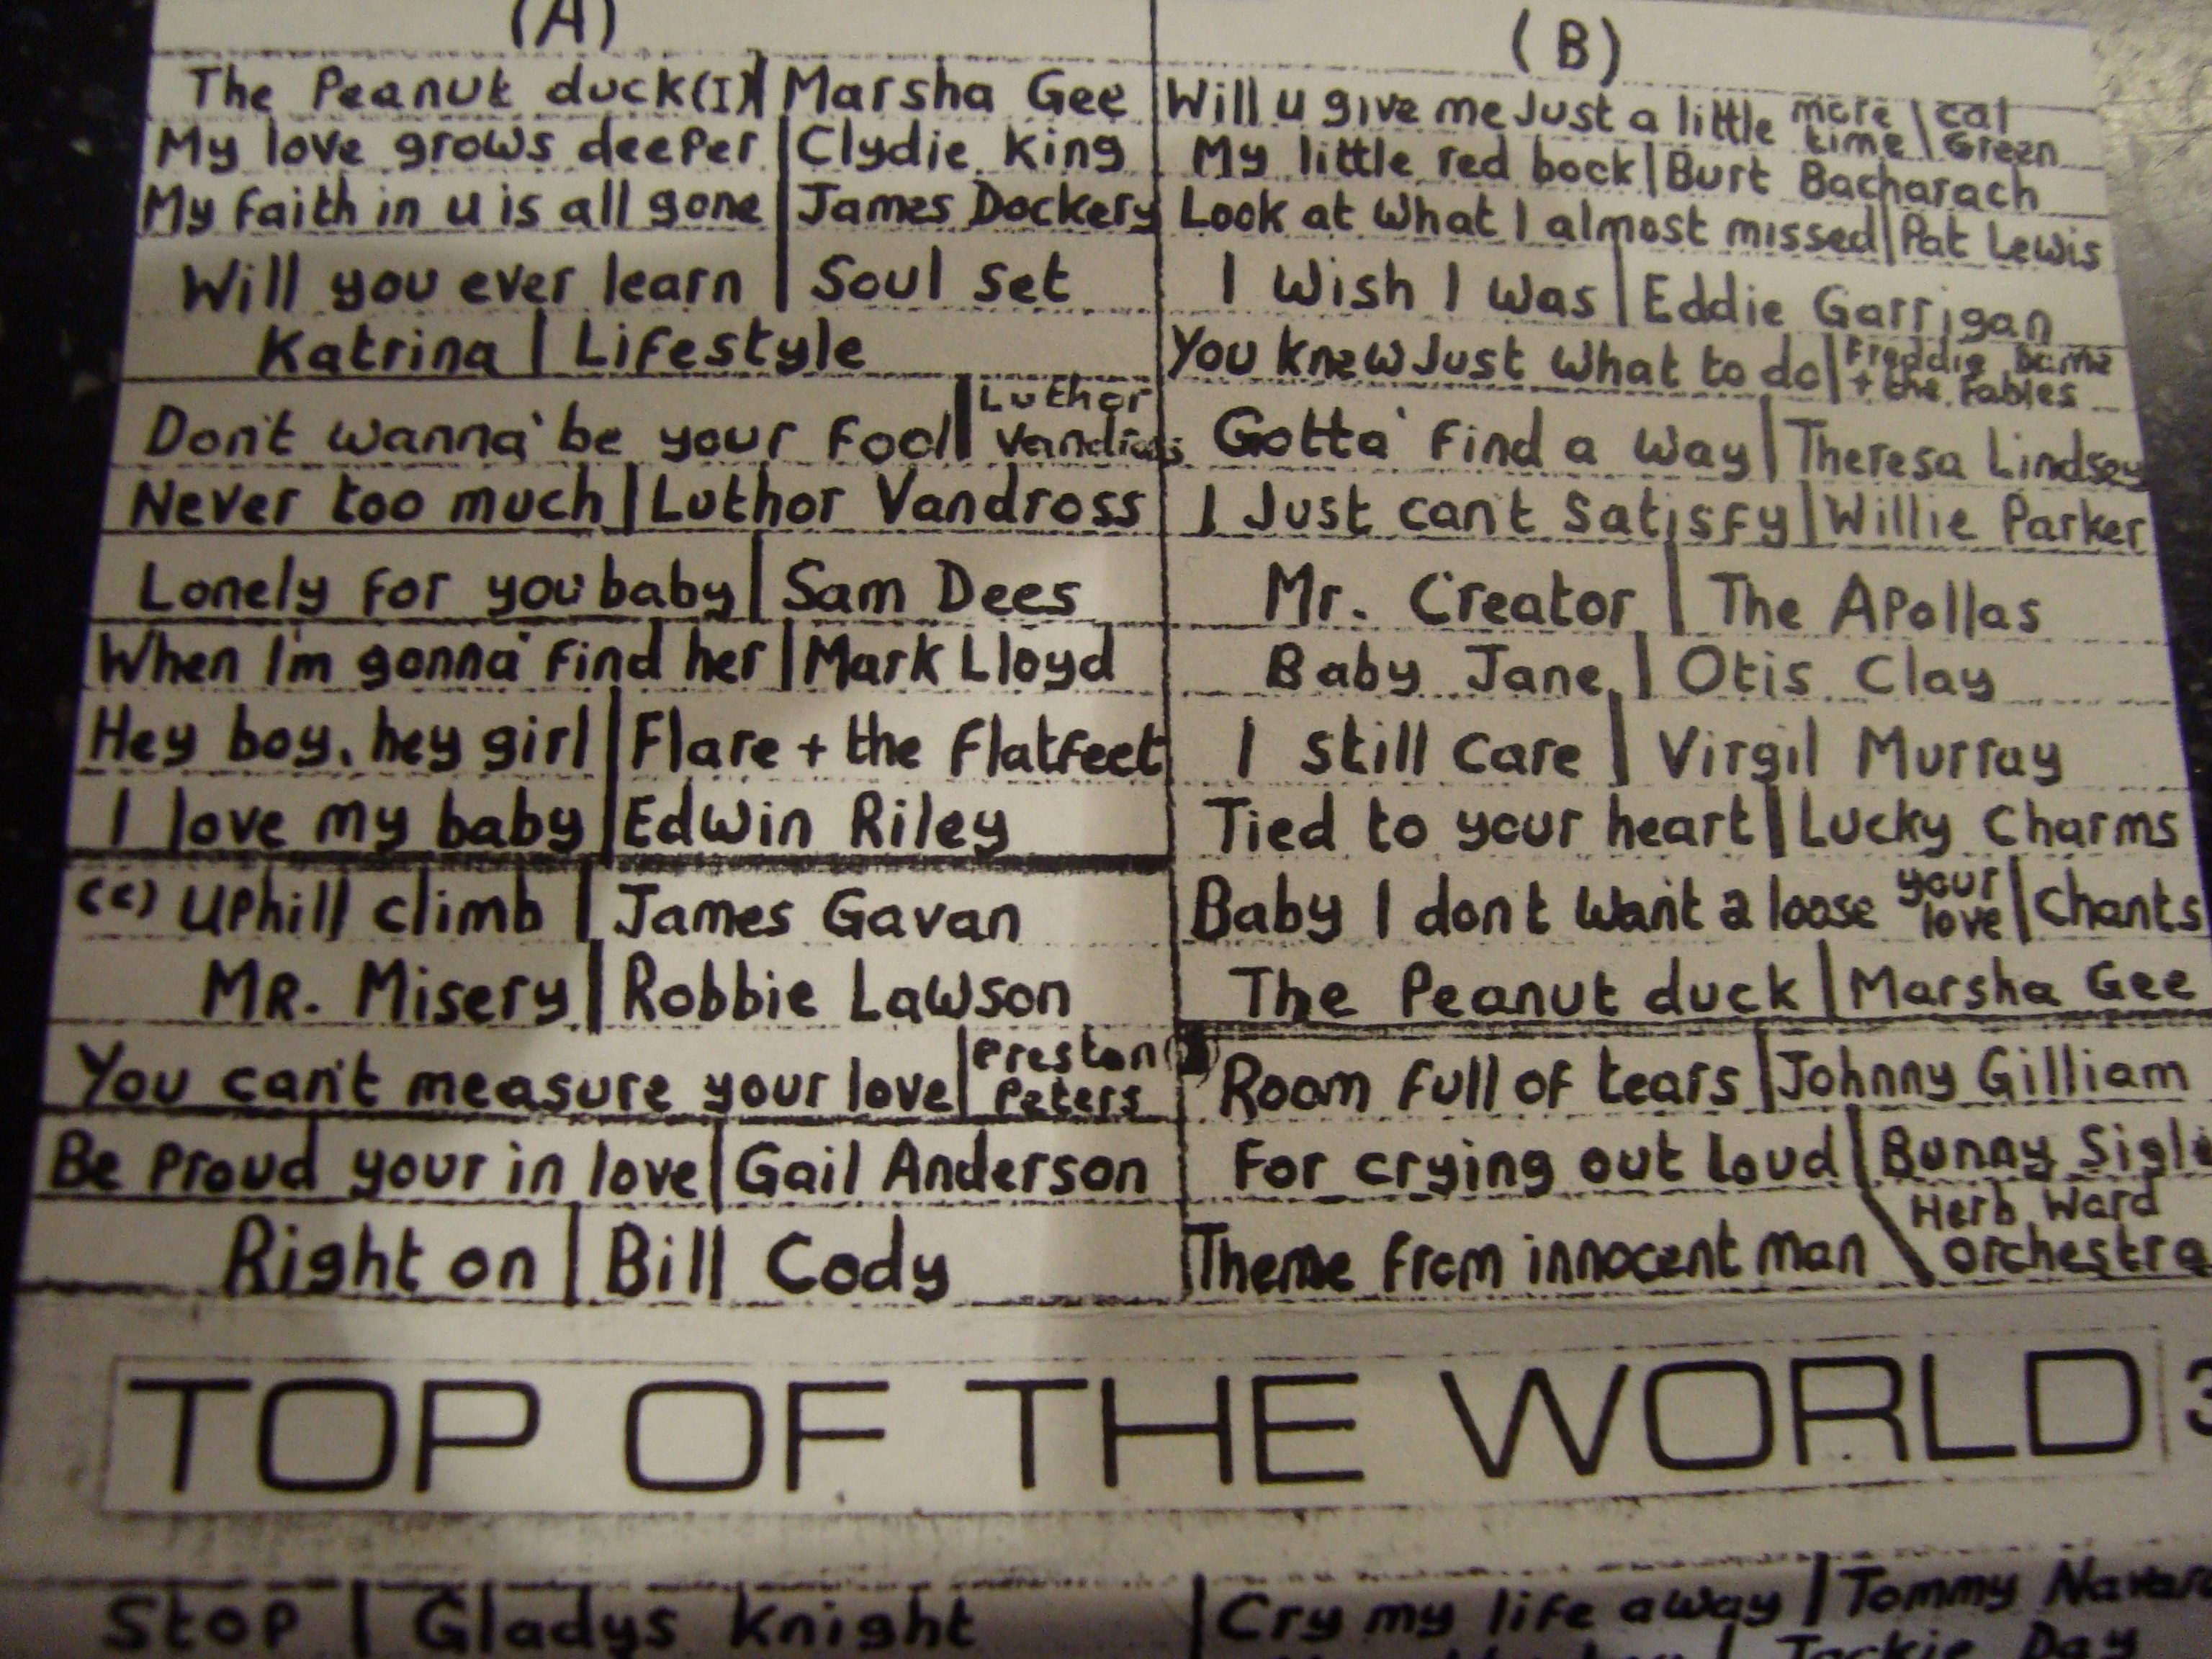 (A)
The Peanut duck(I) | Marsha Gee
My love grows deeper | Clydie King
My faith in u is all gone | James Dockery
Will you ever learn | Soul Set
Katrina | Lifestyle
Don't wanna' be your Fool | Luthor
Never too much | Luthor Vandross
Lonely for you baby | Sam Dees
When I'm gonna' find her | Mark Lloyd
Hey boy, hey girl | Flare + the Flatfeet
I love my baby | Edwin Riley
(c) Uphill climb | James Gavan
MR. Misery | Robbie Lawson
You can't measure your love | Preston Peters
Be Proud your in love | Gail Anderson
Right on | Bill Cody
(B)
Will u give me Just a little more time | Cal Green
My little red bock | Burt Bacharach
Look at What I almost missed | Pat Lewis
I Wish I Was | Eddie Garrigan
You knew Just What to do | Freddie + the Fables
Gotta' Find a Way | Theresa Lindsey
I Just can't Satisfy | Willie Parker
Mr. Creator | The Apollas
Baby Jane, | Otis Clay
I Still Care | Virgil Murray
Tied to your heart | Lucky Charms
Baby I don't Want a loose your love | Chants
The Peanut duck | Marsha Gee
Room Full of tears | Johnny Gilliam
For crying out loud | Bunny
Theme From innocent Man \ Herb Ward Orchestra
TOP OF THE WORLD 3
Stop | Gladys Knight
Cry my life away | Tommy
Jackie Day